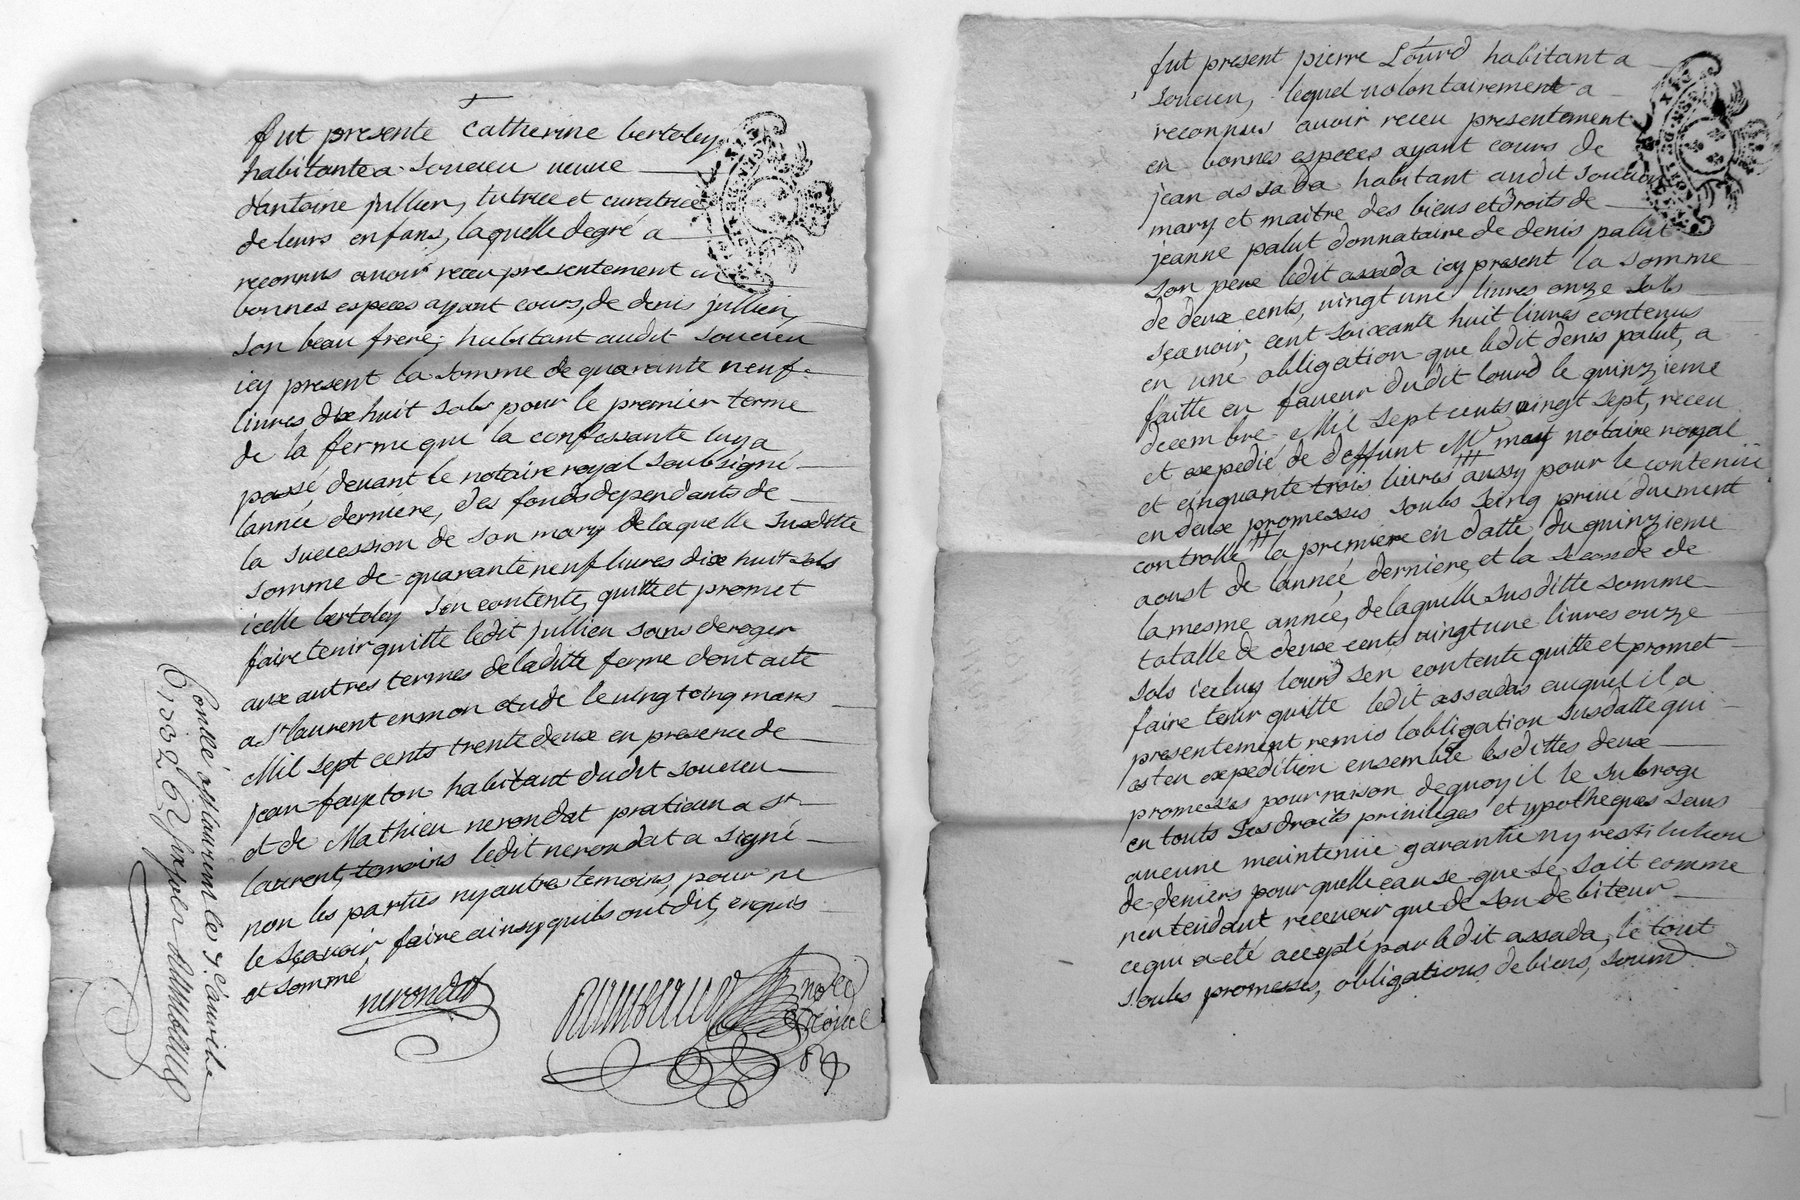 fut presente Catherine bertoley
habitante a Soucieu veuve
d'antoine jullien, tutrice et curatrice
de leurs enfans, laquelle degré a
reconnus avoir receu presentement en
bonnes especes ayant cours, de denis jullien,
son beau frere, habitant audit Soucieu
icy present la somme de quarante neuf
livres dix huit sols pour le premier terme
de la ferme que la confessante luy a
passé devant le notaire royal soubsigné
lannée derniere, des fonds dependants de
la succession de son mary de laquelle susditte
somme de quarante neuf livres dix huit sols
icelle bertoley s'en contente, quitte et promet
faire tenir quitte ledit jullien sans deroger
aux autres termes de laditte ferme dont acte
a St laurent en mon etude le vingt cinq mars
Mil sept cents trente deux en presence de
jean fayeton habitant dudit soucieu
et de Mathieu nerondat praticien a St
laurent, temoins ledit nerondat a signé
non les parties ny autres temoins, pour ne
le sçavoir faire ainsy quils ont dit, enquis
et sommé
nerondat
Conllé a St laurent le 7e avril
1732
fut present pierre Lourd habitant a
Soucieu, lequel volontairement a
reconnus avoir receu presentement
en bonnes especes ayant cours de
jean assada habitant audit Soucieu
mary et maitre des biens et droits de
jeanne palut donnataire de denis palut
son pere ledit assada icy present la somme
de deux cents, vingt une livres onze sols
sçavoir, cent soixante huit livres contenus
en une obligation que ledit denis palut, a
faitte en faveur dudit lourd le quinzieme
decembre Mil sept cents vingt sept, receu
et expedié de deffunt Me notaire royal
et cinquante trois livres aussy pour le contenue
en deux promesses soubs seing privé duement
controllé la premiere en datte du quinzieme
aoust de lannée derniere, et la seconde de
la mesme année, de laquelle susditte somme
totalle de deux cents vingt une livres onze
sols iceluy lourd sen contente quitte et promet
faire tenir quitte ledit assadas auquel il a
presentement remis lobligation susdatte qui
est en expedition ensemble lesdittes deux
promesses pour raison dequoy il le subroge
en touts ses droits privileges et ypotheques sans
aucune maintenüe garantie ny restitution
de deniers pour quelle cause que se soit comme
nentendant recevoir que de son debiteur
ce qui a eté accepté par ledit assada, le tout
soubs promesses, obligations de biens, soumd